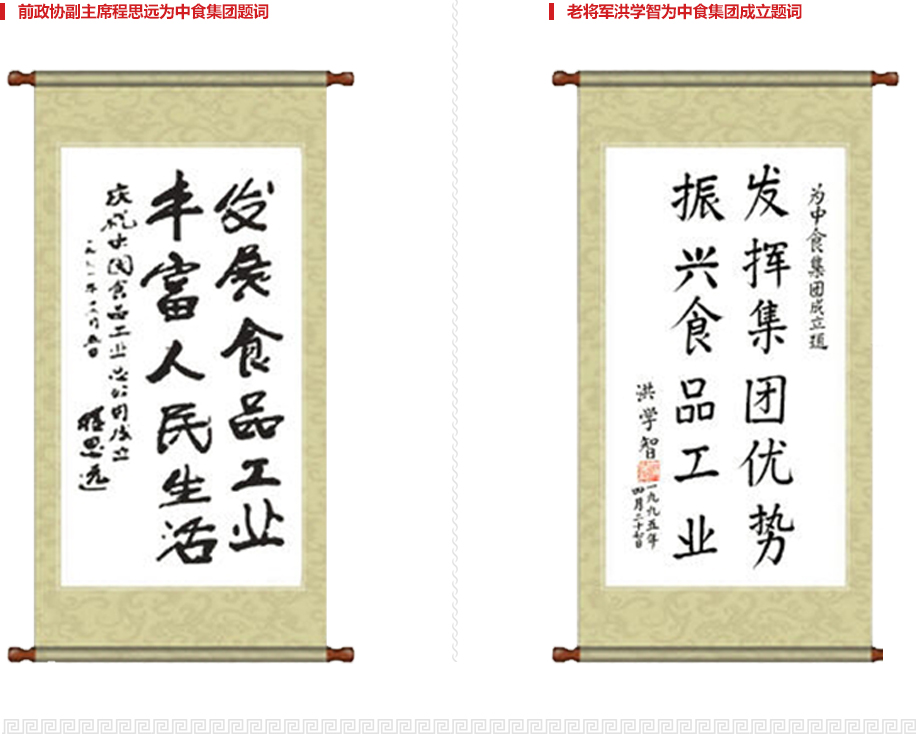 前政协副主席程思远为中食集团题词
发展食品工业
丰富人民生活
庆祝中国食品工业总公司成立
程思远
老将军洪学智为中食集团成立题词
为中食集团成立题
发挥集团优势
振兴食品工业
洪学智
一九九五年
四月二十七日